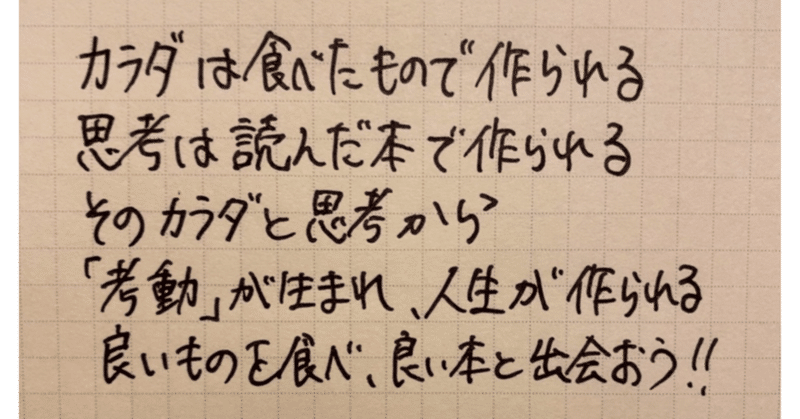 カラダは食べたもので作られる
思考は読んだ本で作られる
そのカラダと思考から
「考動」が生まれ、人生が作られる
良いものを食べ、良い本と出会おう!!